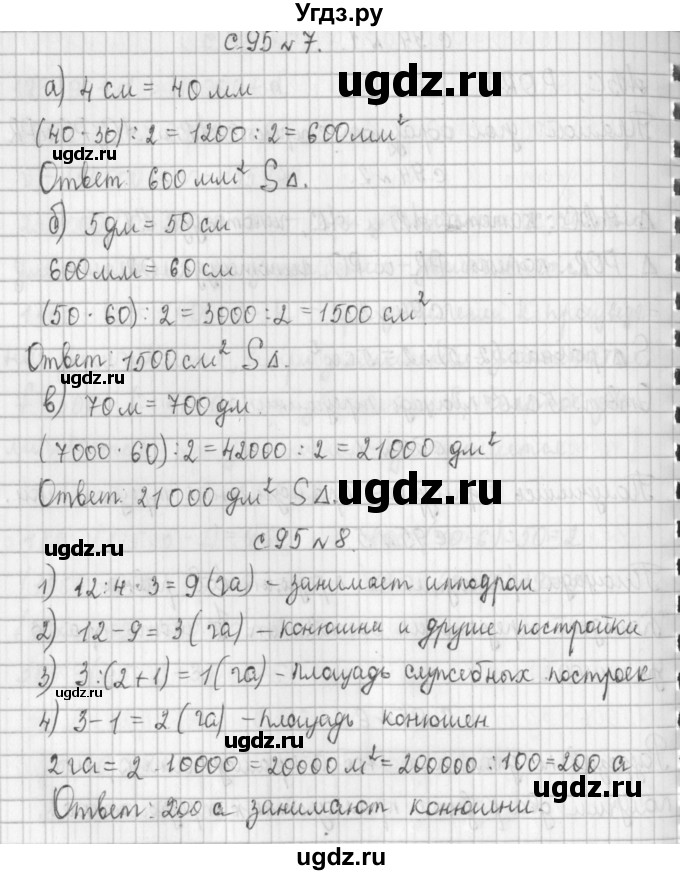 Угдз.ру
с.95 №7.
а) 4 см = 40 мм
(40 · 30) : 2 = 1200 : 2 = 600 мм²
ugdz.ru
ugdz.ru
Ответ: 600 мм² S∆.
б) 5 дм = 50 см
600 мм = 60 см
ugdz.ru
(50 · 60) : 2 = 3000 : 2 = 1500 см²
Ответ: 1500 см² S∆.
ugdz.ru
ugdz.ru
в) 70 м = 700 дм.
(7000 · 60) : 2 = 42000 : 2 = 21000 дм²
Ответ: 21000 дм² S∆.
ugdz.ru
с 95 №8.
ugdz.ru
1) 12 : 4 · 3 = 9 (га) – занимает ипподром
ugdz.ru
2) 12 – 9 = 3 (га) – конюшни и другие постройки
3) 3 : (2 + 1) = 1 (га) – площадь служебных построек
ugdz.ru
4) 3 – 1 = 2 (га) – площадь конюшен
ugdz.ru
2 га = 2 · 10000 = 20000 м² = 200000 : 100 = 200 а
ugdz.ru
Ответ: 200 а занимают конюшни.
ugdz.ru
ugdz.ru